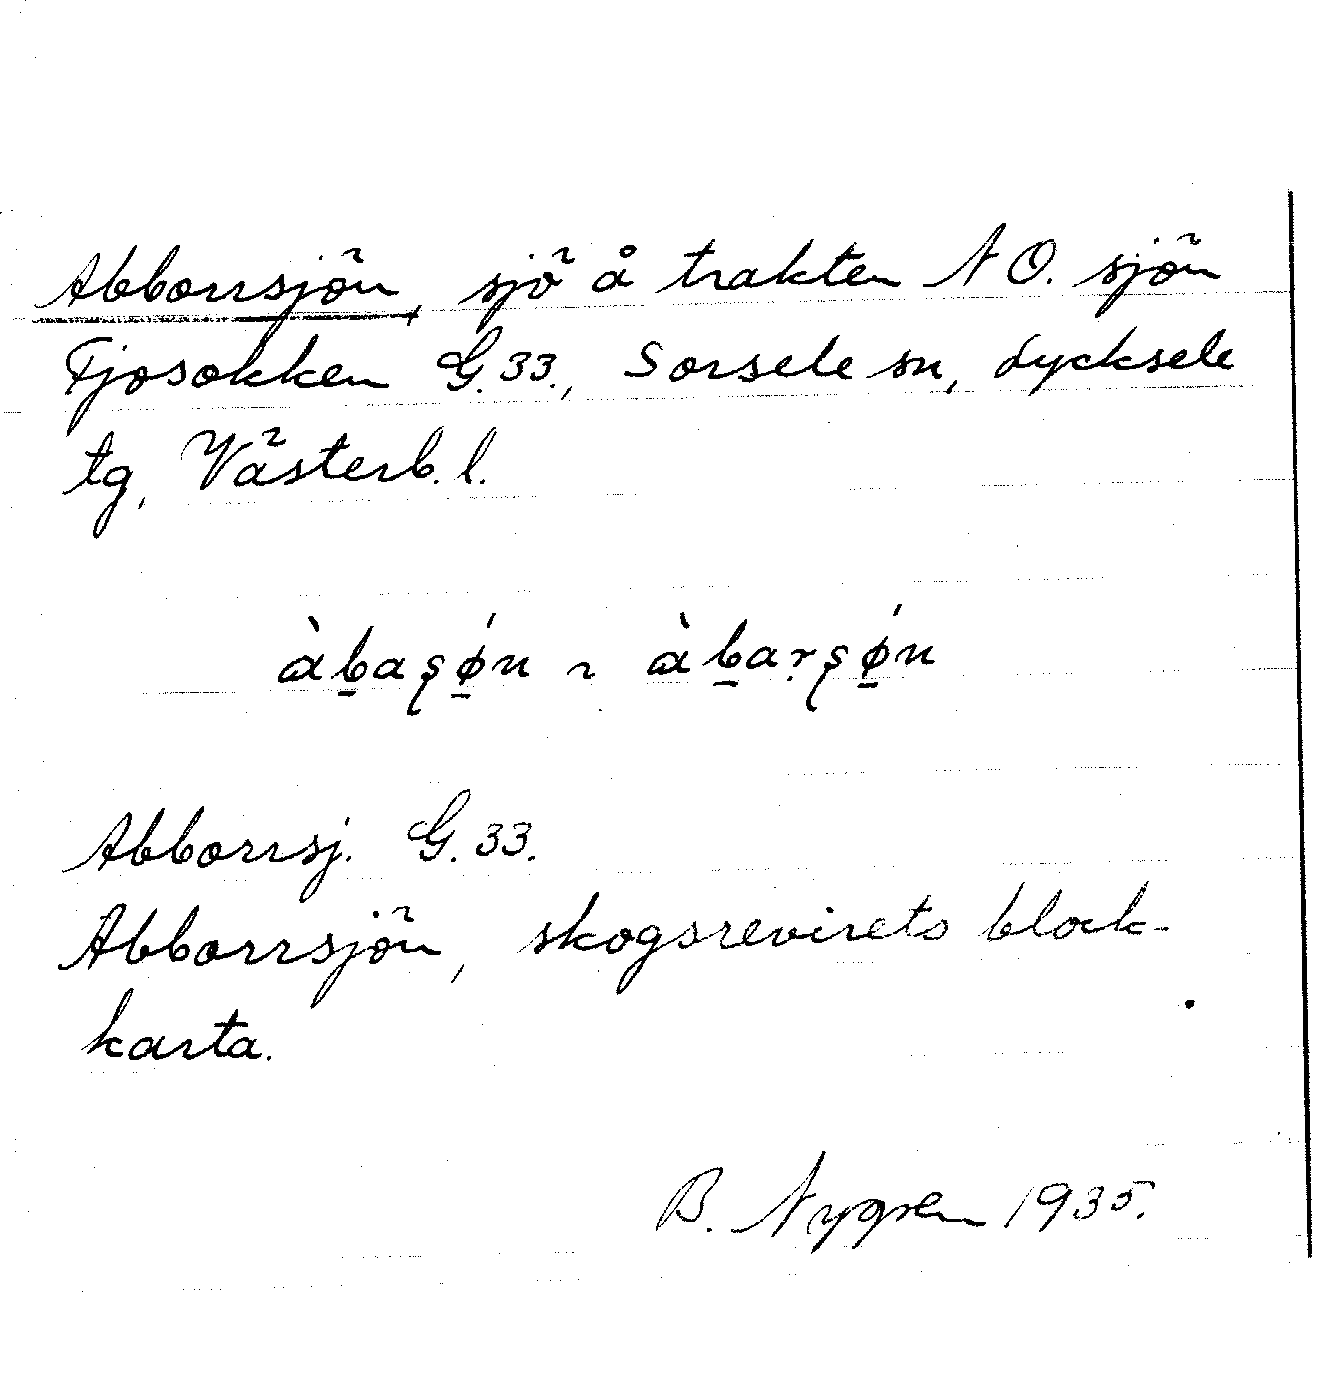 Abborrsjön, sjö å trakten NO. sjön
Fjosokken G.33., Sorsele sn, Lycksele
tg, Västerb. l.
àb̲aʂǿ̲n ~ àb̲aṛʂǿ̲n
Abborrsj. G.33.
Abborrsjön, skogsrevirets block-
karta.
B. Nygren 1935.